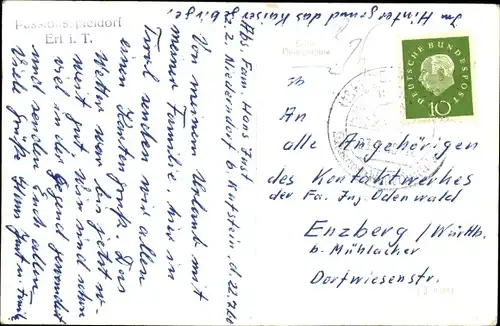 Passionsspieldorf
Erl i. T.
Im Hintergrund das Kaisergebirge.
Abs. Fam. Hans Just
z. Z. Niederndorf b. Kufstein, d. 22.7.60
Von meinem Urlaub mit
meiner Familie hier in
Tirol senden wir allen
einen Kartengruß. Das
Wetter war bis jetzt
meist gut. Wir sind schon
viel in der Gegend gewandert
und senden Euch allen
Viele Grüße Hans Just u. Familie
Echte
Photographie
DEUTSCHE BUNDESPOST
10
An
alle Angehörigen
des Kontaktwerkes
der Fa. Ing. Odenwald
Enzberg /Württb.
b. Mühlacker
Dorfwiesenstr.